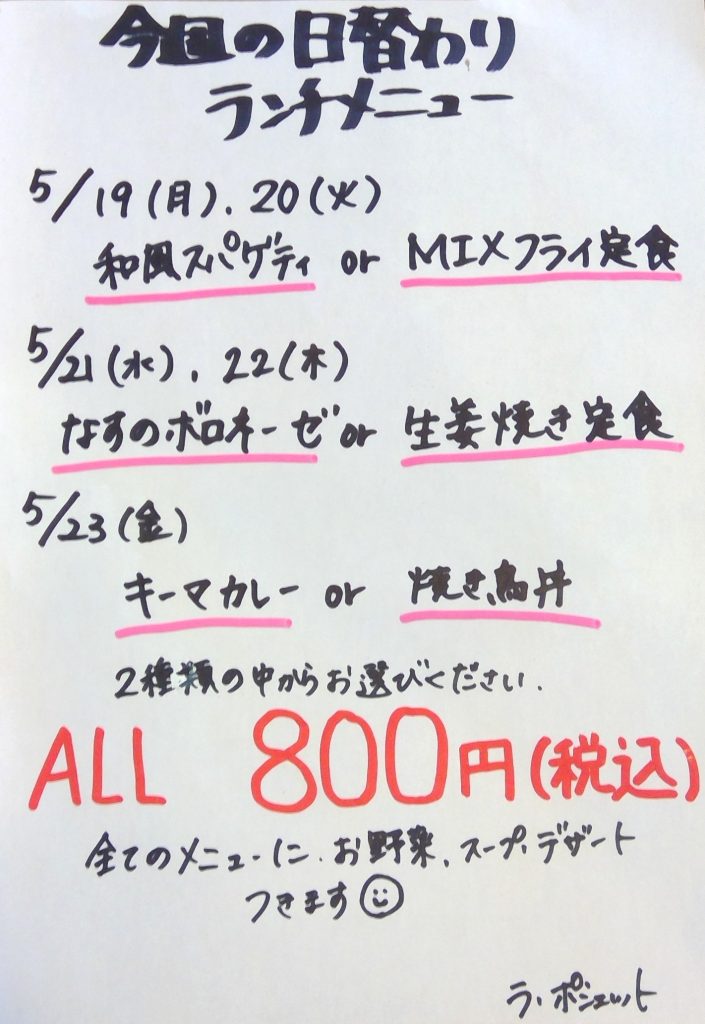 今週の日替わり
ランチメニュー
5/19(月).20(火)
和風スパゲティ or MIXフライ定食
5/21(水).22(木)
なすのボロネーゼ or 生姜焼き定食
5/23(金)
キーマカレー or 焼き鳥丼
2種類の中からお選びください.
ALL 800円(税込)
全てのメニューに.お野菜、スープ、デザート
つきます
ラ・ポシェット